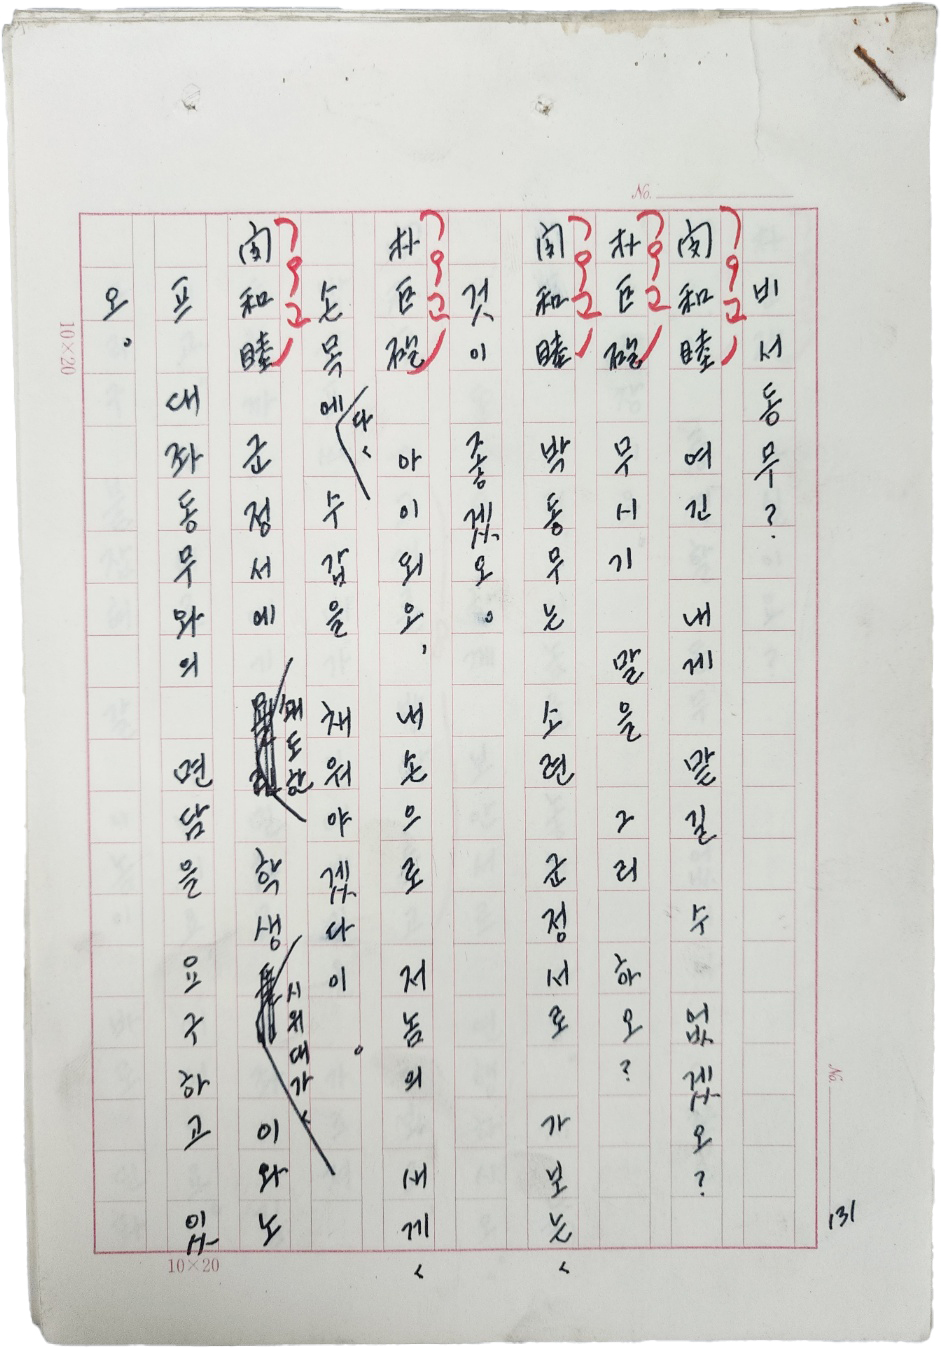 No.
비서동무?
闵和睦 여긴 내게 맡길 수 없겠오?
朴巨 무시기 말을 그리 하오?
闵和睦 박동무는 소련 군정서로 가보는
것이 좋겠오。
朴巨 아이 되오, 내 손으로 저놈의 새게
손목에다 수갑을 채워야겠다이。
闵和睦 군정서에 쇄도한 학생 시위대가 이와노
프 대좌동무와의 면담을 요구하고 있
오。
(9고)
(9고)
(9고)
(9고)
(9고)
No.
131
10×20
10×20